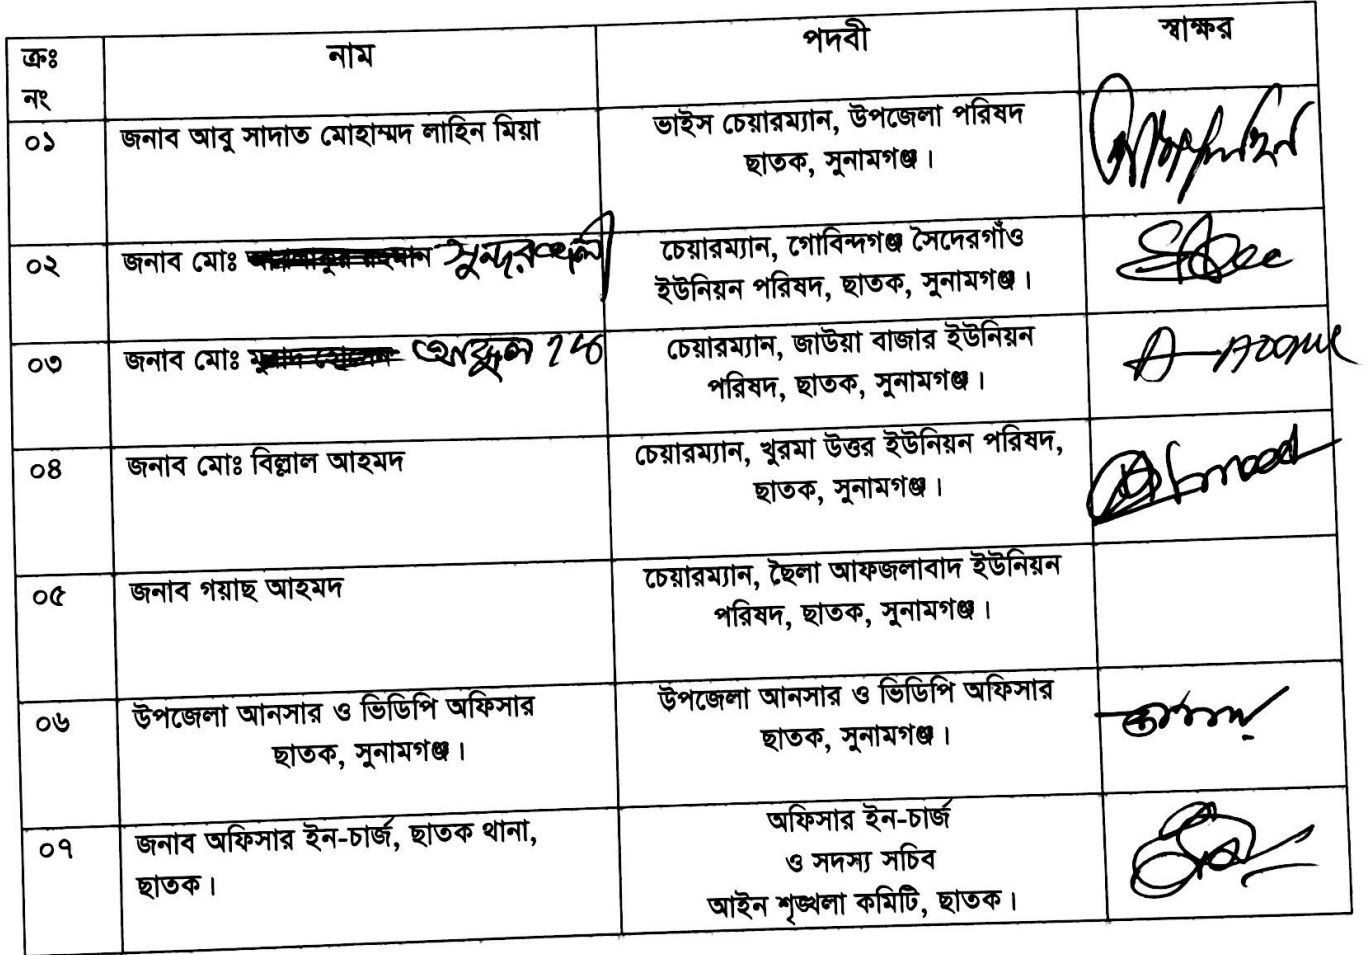 ক্রঃ নং নাম পদবী স্বাক্ষর
০১ জনাব আবু সাদাত মোহাম্মদ লাহিন মিয়া ভাইস চেয়ারম্যান, উপজেলা পরিষদ
ছাতক, সুনামগঞ্জ।
০২ জনাব মোঃ সুন্দর আলী চেয়ারম্যান, গোবিন্দগঞ্জ সৈদেরগাঁও
ইউনিয়ন পরিষদ, ছাতক, সুনামগঞ্জ।
০৩ জনাব মোঃ আব্দুল হক চেয়ারম্যান, জাউয়া বাজার ইউনিয়ন
পরিষদ, ছাতক, সুনামগঞ্জ।
০৪ জনাব মোঃ বিল্লাল আহমদ চেয়ারম্যান, খুরমা উত্তর ইউনিয়ন পরিষদ,
ছাতক, সুনামগঞ্জ।
০৫ জনাব গয়াছ আহমদ চেয়ারম্যান, ছৈলা আফজলাবাদ ইউনিয়ন
পরিষদ, ছাতক, সুনামগঞ্জ।
০৬ উপজেলা আনসার ও ভিডিপি অফিসার উপজেলা আনসার ও ভিডিপি অফিসার
ছাতক, সুনামগঞ্জ। ছাতক, সুনামগঞ্জ।
০৭ জনাব অফিসার ইন-চার্জ, ছাতক থানা, অফিসার ইন-চার্জ
ছাতক। ও সদস্য সচিব
আইন শৃঙ্খলা কমিটি, ছাতক।